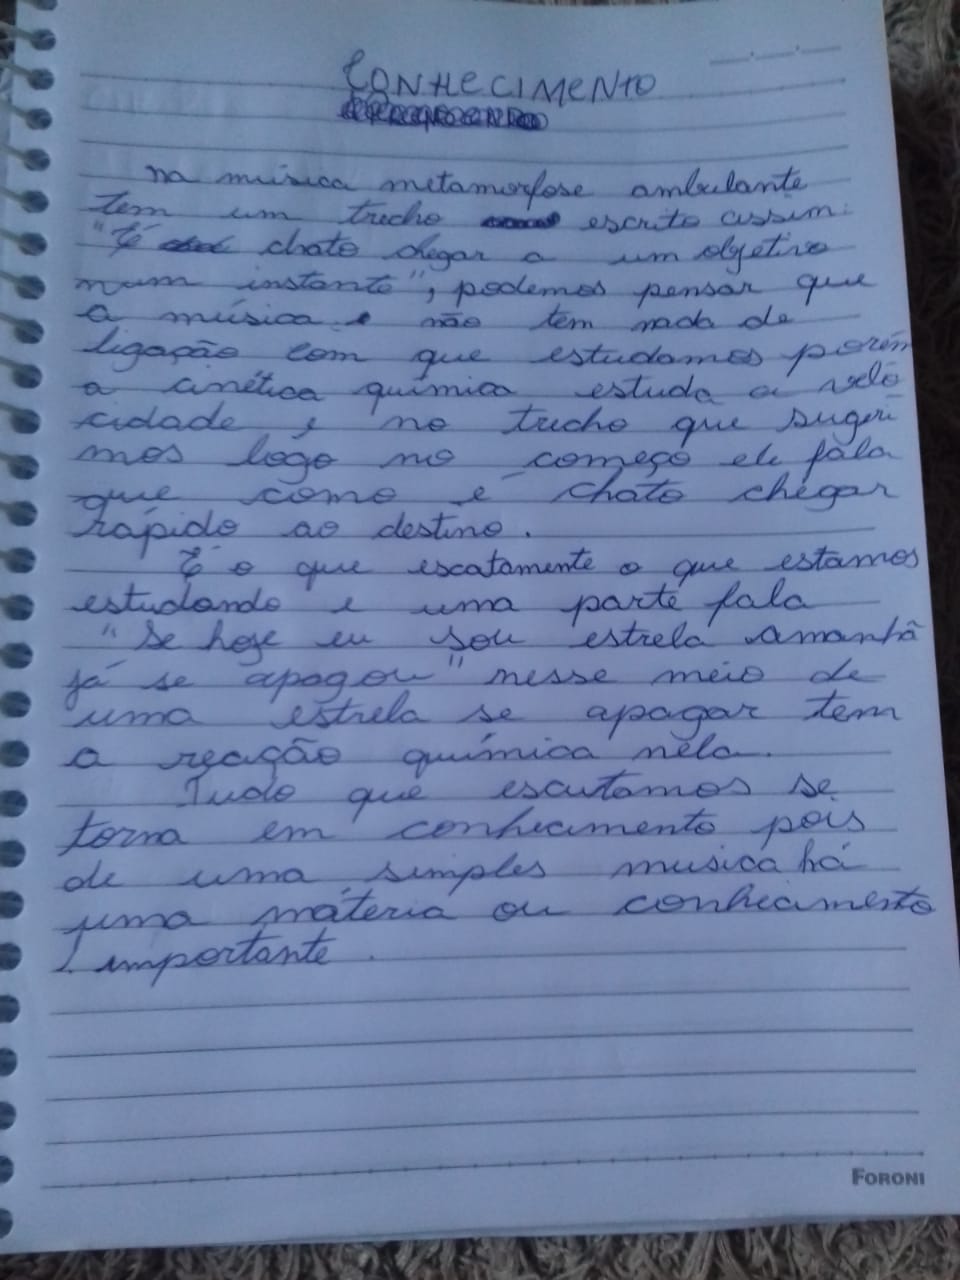 CONHECIMENTO
na música metamorfose ambulante
tem um trecho escrito assim:
"É chato chegar a um objetivo
num instante", podemos pensar que
a música e não tem nada de
ligação com que estudamos porém
a cinética química estuda a velo
cidade, no trecho que sugeri
mos logo no começo ele fala
que como é chato chegar
rápido ao destino.
É o que escatamente o que estamos
estudando e uma parte fala
"Se hoje eu sou estrela amanhã
já se apagou" nesse meio de
uma estrela se apagar tem
a reação química nela.
Tudo que escutamos se
torna em conhecimento pois
de uma simples musica há
uma máteria ou conhecimento
importante.
FORONI